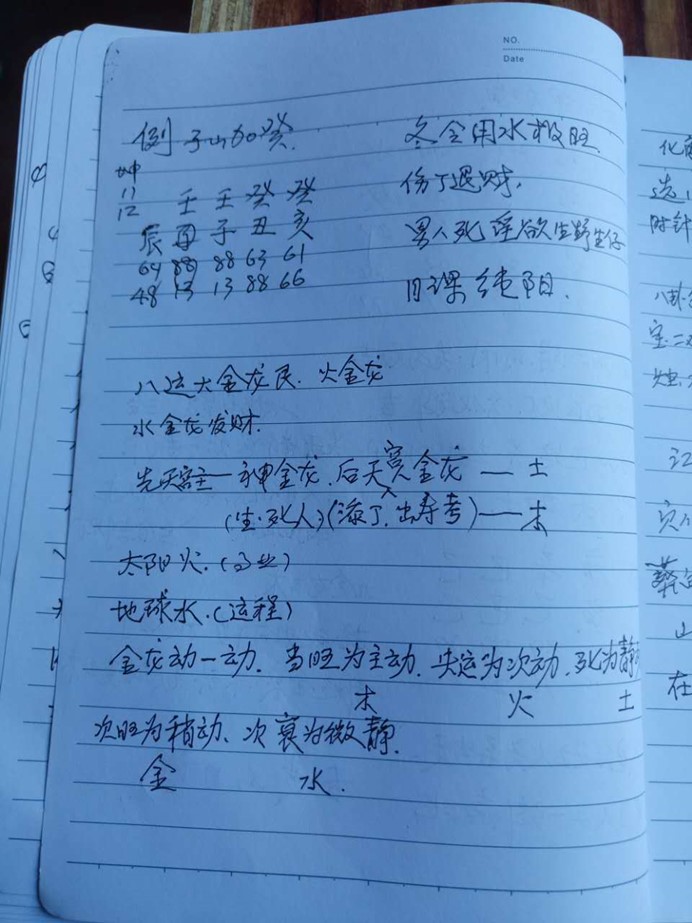 NO.
Date
例 子山加癸. 冬令用水极旺.
坤
11 壬 壬 癸 癸 伤丁退财.
12
辰 酉 子 丑 亥 男人死 淫欲生野生仔
64 88 88 63 61
48 13 13 88 66 旧课 纯阳.
八运大金龙民. 火金龙
水金龙发财.
先天 主— 神金龙. 后天 人金龙 — 土
(生.死人)(添丁.出寿考)— 木
太阳火.( 业)
地球水.(运程)
金龙动一动. 当旺为主动. 失运为次动. 死为静
木 火 土
次旺为稍动、次衰为微静.
金 水.
化
选
时针
八卦
宝.二
江
葬
山
在